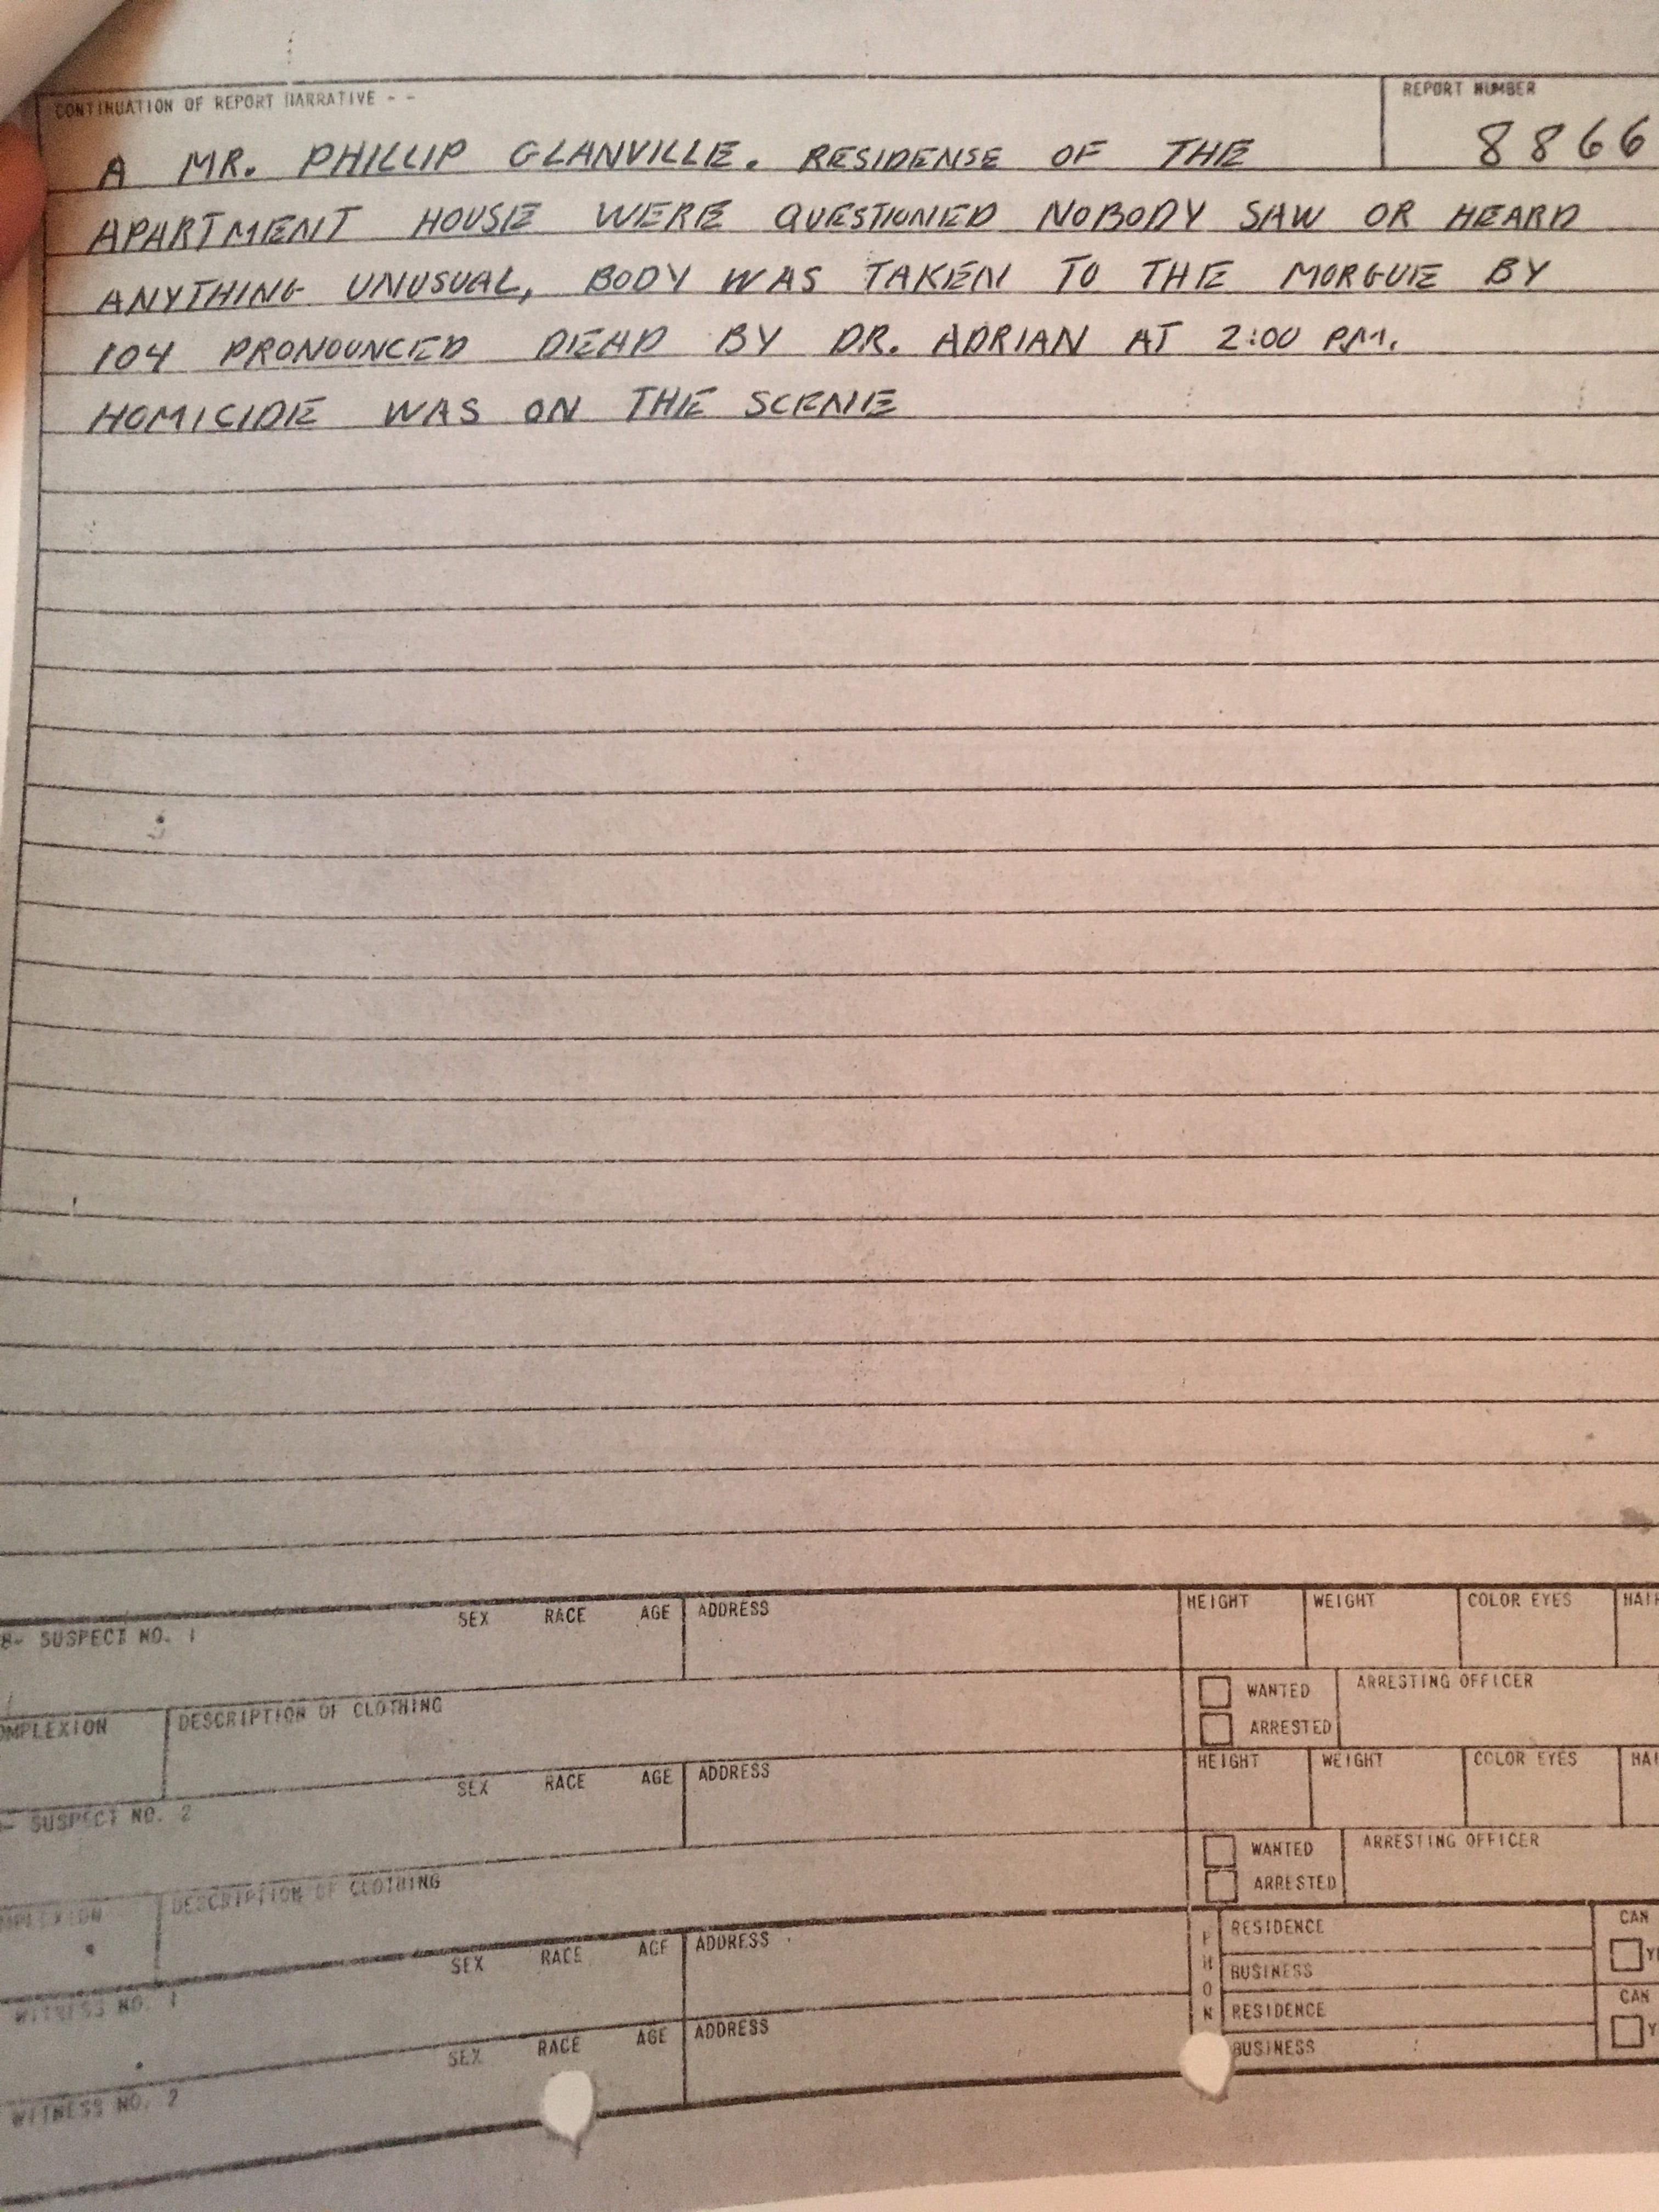 CONTINUATION OF REPORT NARRATIVE - -
REPORT NUMBER
8866
A MR. PHILLIP GLANVILLE. RESIDENSE OF THE
APARTMENT HOUSE WERE QUESTIONED NOBODY SAW OR HEARD
ANYTHING UNUSUAL, BODY WAS TAKEN TO THE MORGUE BY
104 PRONOUNCED DEAD BY DR. ADRIAN AT 2:00 P.M.
HOMICIDE WAS ON THE SCENE
8- SUSPECT NO. 1 SEX RACE AGE ADDRESS HEIGHT WEIGHT COLOR EYES HAIR
OMPLEXION DESCRIPTION OF CLOTHING WANTED ARRESTING OFFICER
ARRESTED
- SUSPECT NO. 2 SEX RACE AGE ADDRESS HEIGHT WEIGHT COLOR EYES HAI
MPLEXION DESCRIPTION OF CLOTHING WANTED ARRESTING OFFICER
ARRESTED
WITNESS NO. 1 SEX RACE AGE ADDRESS PHON RESIDENCE CAN
BUSINESS Y
WITNESS NO. 2 SEX RACE AGE ADDRESS RESIDENCE CAN
BUSINESS Y